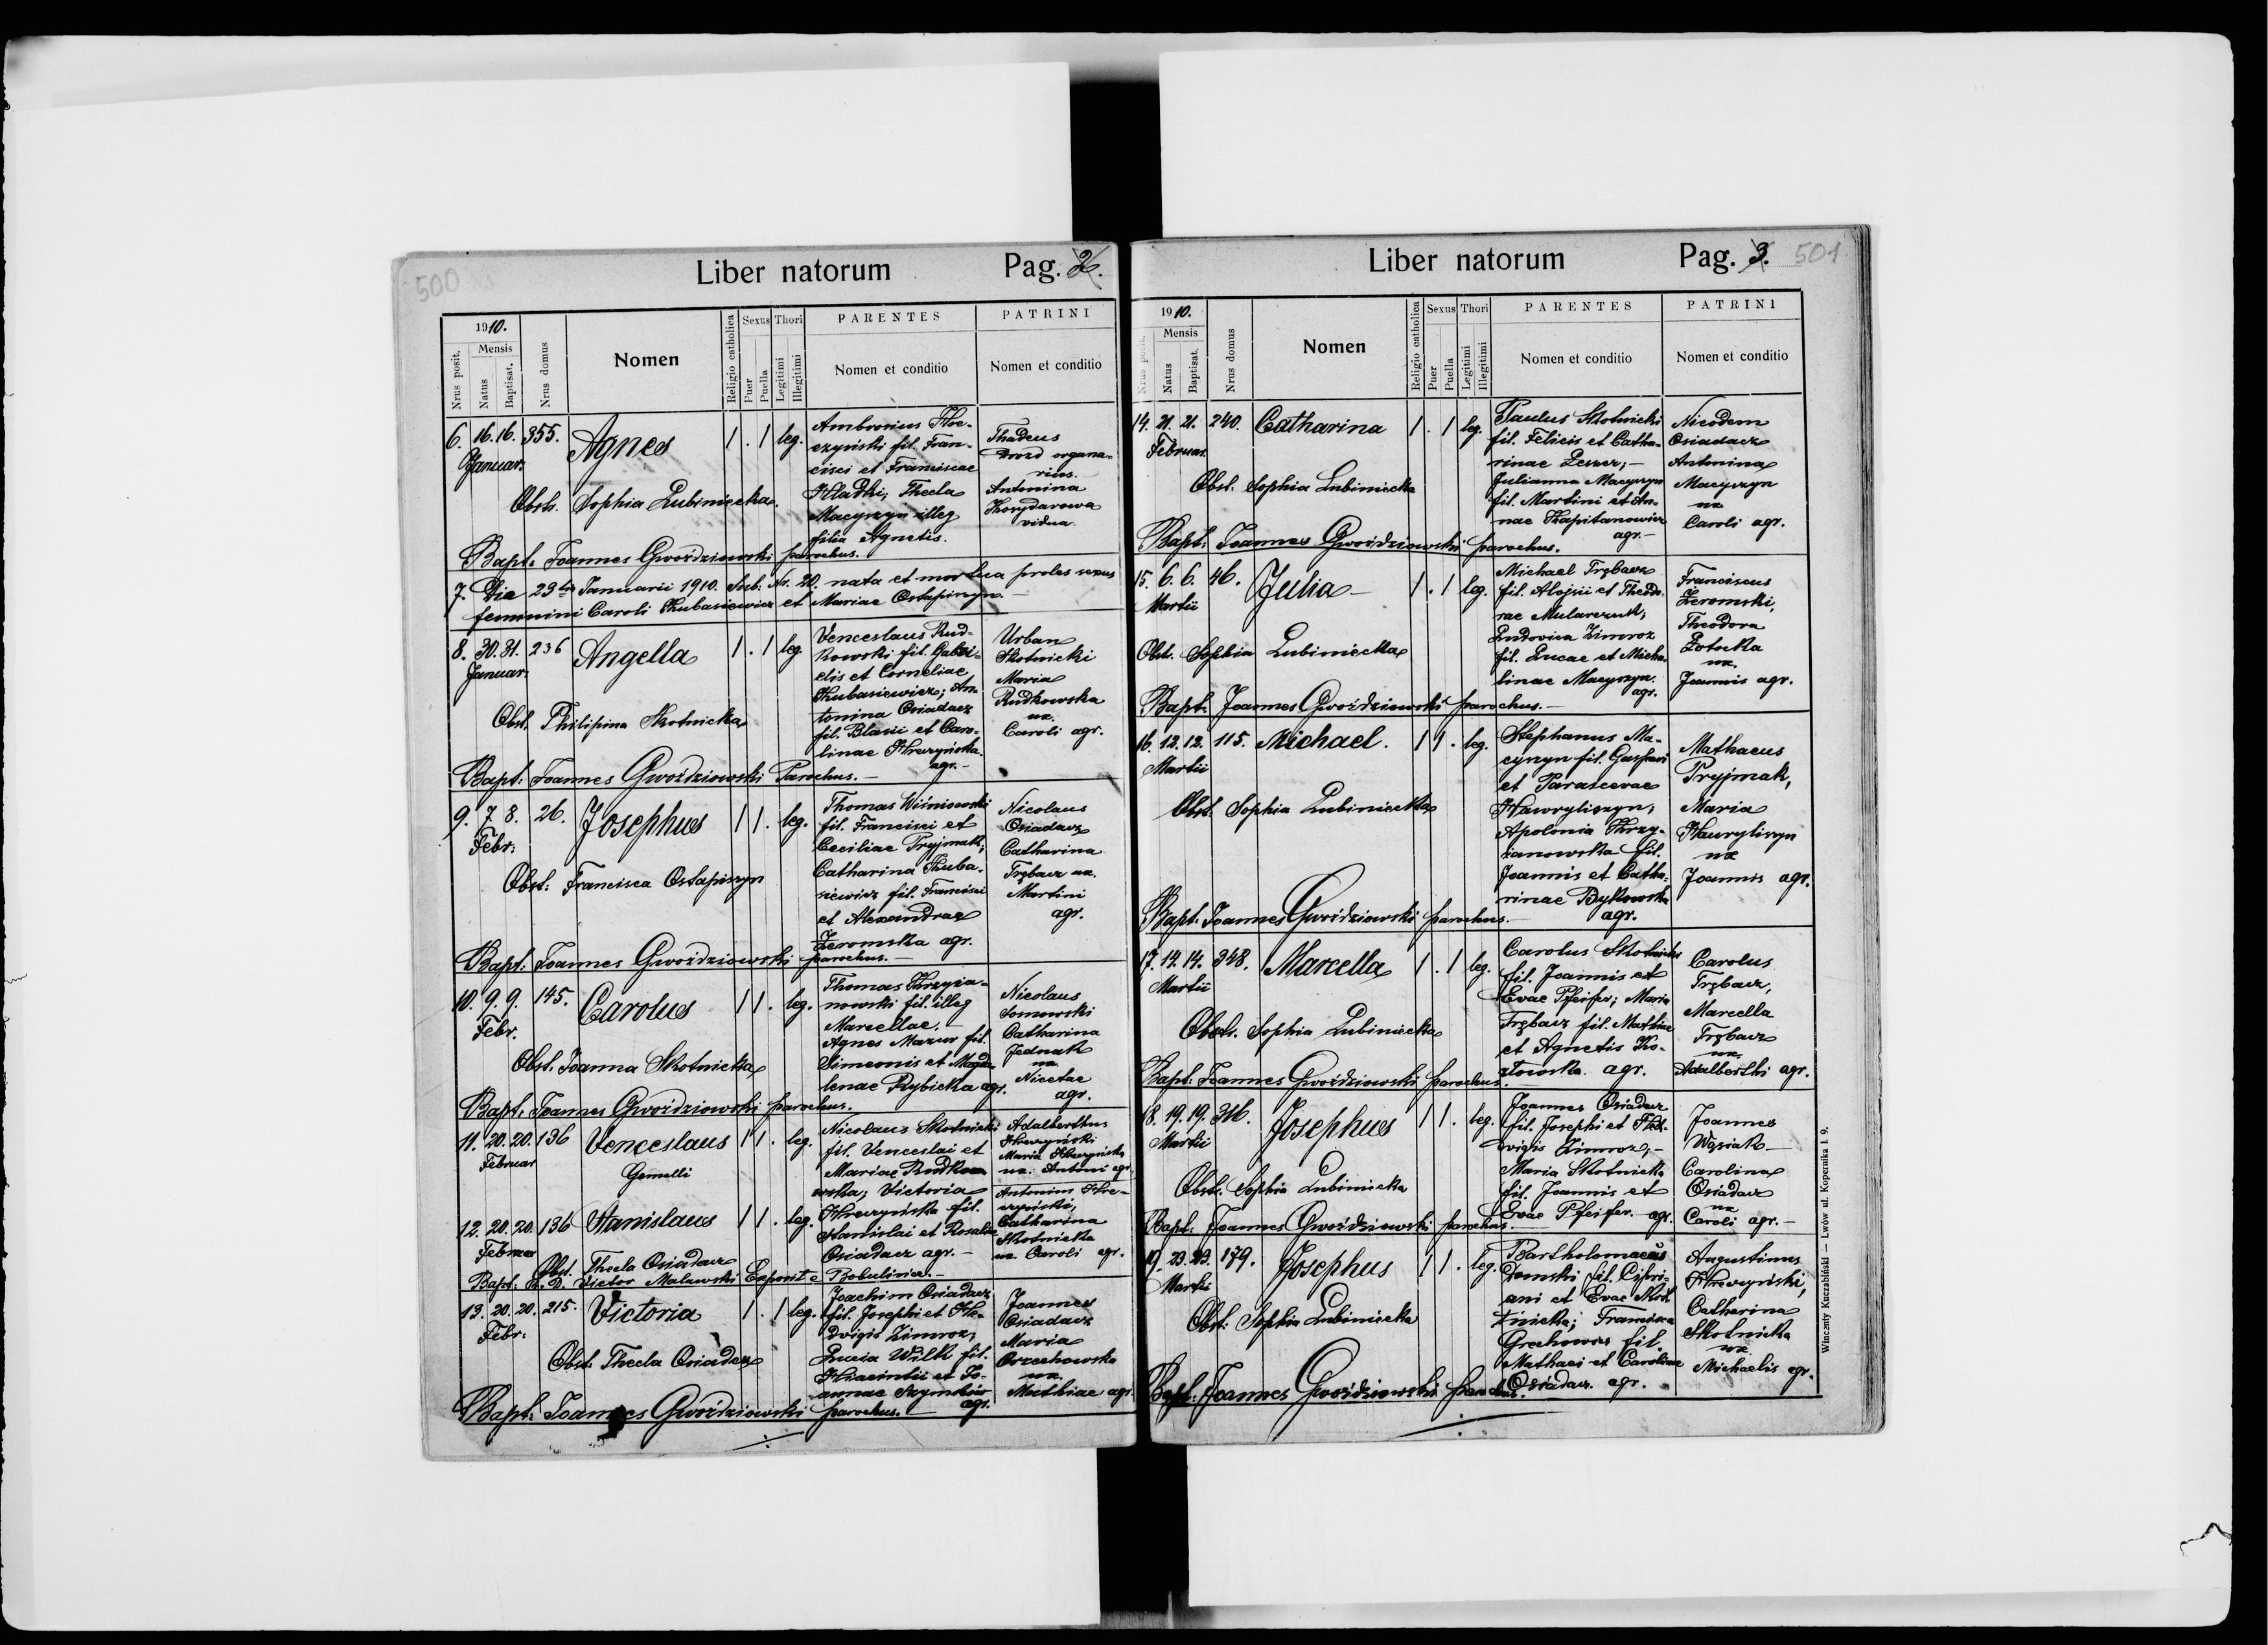 500
Liber natorum
Pag. 2.
1910.
Nrus posit.
Mensis
Natus
Baptisat.
Nrus domus
Nomen
Religio catholica
Sexus
Puer
Puella
Thori
Legitimi
Illegitimi
PARENTES
Nomen et conditio
PATRINI
Nomen et conditio
6. 16. 16. 355. Agnes 1 . 1 leg.
Januar.
Obstr. Sophia Lubiniecka.
Ambrosius Hre-
czyński fil. Fran-
cisci et Franciscae
Hladki, Thecla
Macyszyn illeg
filia Agnetis.
Thadeus
Drozd organa-
rius.
Antonina
Kosydarowa
vidua
Bapt. Joannes Gwoździowski parochus.
7. Die 23tia Januarii 1910. Sub. Nr. 20. nata et mortua proles sexus
feminini Caroli Kubasiewicz et Mariae Ostapiszyn.
8. 30. 31. 236 Angella 1 . 1 leg
Januar.
Obst. Philipina Skotnicka
Venceslaus Rud-
kowski fil. Gabri-
elis et Corneliae
Kubasiewicz; An-
tonina Osiadacz
fil. Blasii et Caro-
linae Hreczyńska.
agr.-
Urban
Skotnicki
Maria
Rudkowska
ux.
Caroli agr.
Bapt. Joannes Gwoździowski Parochus.-
9. 7. 8. 26. Josephus 1 1 . leg.
Febr.
Obst: Francisca Ostapiszyn
Thomas Wiśniowski
fil. Francisci et
Ceciliae Pryjmak;
Catharina Kuba-
siewicz fil. Francisci
et Alexandrae
Żeromska agr.
Nicolaus
Osiadacz
Catharina
Trębacz ux.
Martini
agr.
Bapt. Joannes Gwoździowski parochus.-
10. 9. 9. 145. Carolus 1 1 . leg.
Febr.
Obst. Joanna Skotnicka
Thomas Krzyża-
nowski fil. illeg
Marcellae.-
Agnes Mazur fil.
Simeonis et Magda-
lenae Rybicka agr.
Nicolaus
Somowski
Catharina
Jednak
ux.
Nicetae
agr.
Bapt. Joannes Gwoździowski parochus.
11. 20. 20. 136 Venceslaus 1 1 . leg.
Februar
Gemelli
Nicolaus Skotnicki
fil. Venceslai et
Mariae Rudko-
wska; Victoria
Hreczyńska fil.
Stanislai et Rosaliae
Osiadacz agr.-
Adalbertus
Hreczyński
Maria Hreczyńska
ux. Antoni agr.
12. 20. 20. 136 Stanislaus 1 1 . leg.
Februar
Antonius Hre-
czyński,
Catharina
Skotnicka
ux. Caroli agr.
Obst. Thecla Osiadacz
Bapt. R. D. Victor Malawski Exposit e Bobulince.-
13. 20. 20. 215. Victoria 1 . 1 leg.
Febr.
Obst. Thecla Osiadacz
Joachim Osiadacz
fil. Josephi et He-
dvigis Zimroz,
Lucia Wilk fil.
Hiacintii et Jo-
annae Szymków
agr.
Joannes
Osiadacz
Maria
Orzechowska
ux.
Mathiae agr.
Bapt. Joannes Gwoździowski parochus.-
Liber natorum
Pag. 3.
501
1910.
Nrus posit.
Mensis
Natus
Baptisat.
Nrus domus
Nomen
Religio catholica
Sexus
Puer
Puella
Thori
Legitimi
Illegitimi
PARENTES
Nomen et conditio
PATRINI
Nomen et conditio
14. 21. 21. 240. Catharina 1 . 1 leg.
Februar.
Obst. Sophia Lubiniecka
Paulus Skotnicki
fil. Felicis et Catha-
rinae Leszcz;-
Julianna Macyszyn
fil. Martini et An-
nae Kapitanowicz
agr.-
Nicodem
Osiadacz
Antonina
Macyszyn
ux
Caroli agr.
Bapt. Joannes Gwoździowski parochus.
15. 6. 6. 46. Julia- 1 . 1 leg.
Martii
Obst. Sophia Lubiniecka
Michael Trębacz
fil. Alojsii et Theodo-
rae Mularczuk;
Ludovica Zimroz
fil. Lucae et Micha-
linae Macyszyn.
agr.
Franciscus
Żeromski,
Theodora
Zotocka
ux.
Joannis agr.
Bapt. Joannes Gwoździowski parochus.-
16. 12. 12. 115. Michael. 1 1 . leg.
Martii
Obst. Sophia Lubiniecka
Stephanus Ma-
cyszyn fil. Gaspari
et Parascevae
Hawryliszyn;
Apolonia Krzy-
żanowska fil.
Joannis et Catha-
rinae Bykowska
agr.
Mathaeus
Pryjmak,
Maria
Hawryliszyn
ux
Joannis agr.
Bapt. Joannes Gwoździowski parochus.
17. 14. 14. 348. Marcella 1 . 1 leg.
Martii
Obstr. Sophia Lubiniecka
Carolus Skotnicki
fil. Joannis et
Evae Pfeifer; Maria
Trębacz fil. Mathiae
et Agnetis Ko-
złowska. agr.
Carolus
Trębacz,
Marcella
Trębacz
ux.
Adalberthi agr.
Bapt. Joannes Gwoździowski parochus.
18. 19. 19. 316. Josephus 1 1 . leg.
Martii
Obst. Sophia Lubiniecka
Joannes Osiadacz
fil. Josephi et Hed-
vigis Zimroz;-
Maria Skotnicka
fil. Joannis et
Evae Pfeifer. agr.
Joannes
Wąsiak-
Carolina
Osiadacz
ux
Caroli agr.-
Bapt. Joannes Gwoździowski parochus.
19. 23. 23. 179. Josephus 1 1 . leg.
Martii
Obst: Sophia Lubiniecka
Bartholomaeus
Domski fil. Cipri-
ani et Evae Skot-
nicka; Francisca
Grechowicz fil.
Mathaei et Carolinae
Osiadacz. agr.
Augustinus
Hreczyński,
Catharina
Skotnicka
ux.
Michaelis agr.
Bapt. Joannes Gwoździowski parochus.
Winczenty Kuczabiński — Lwów ul. Kopernika l. 9.